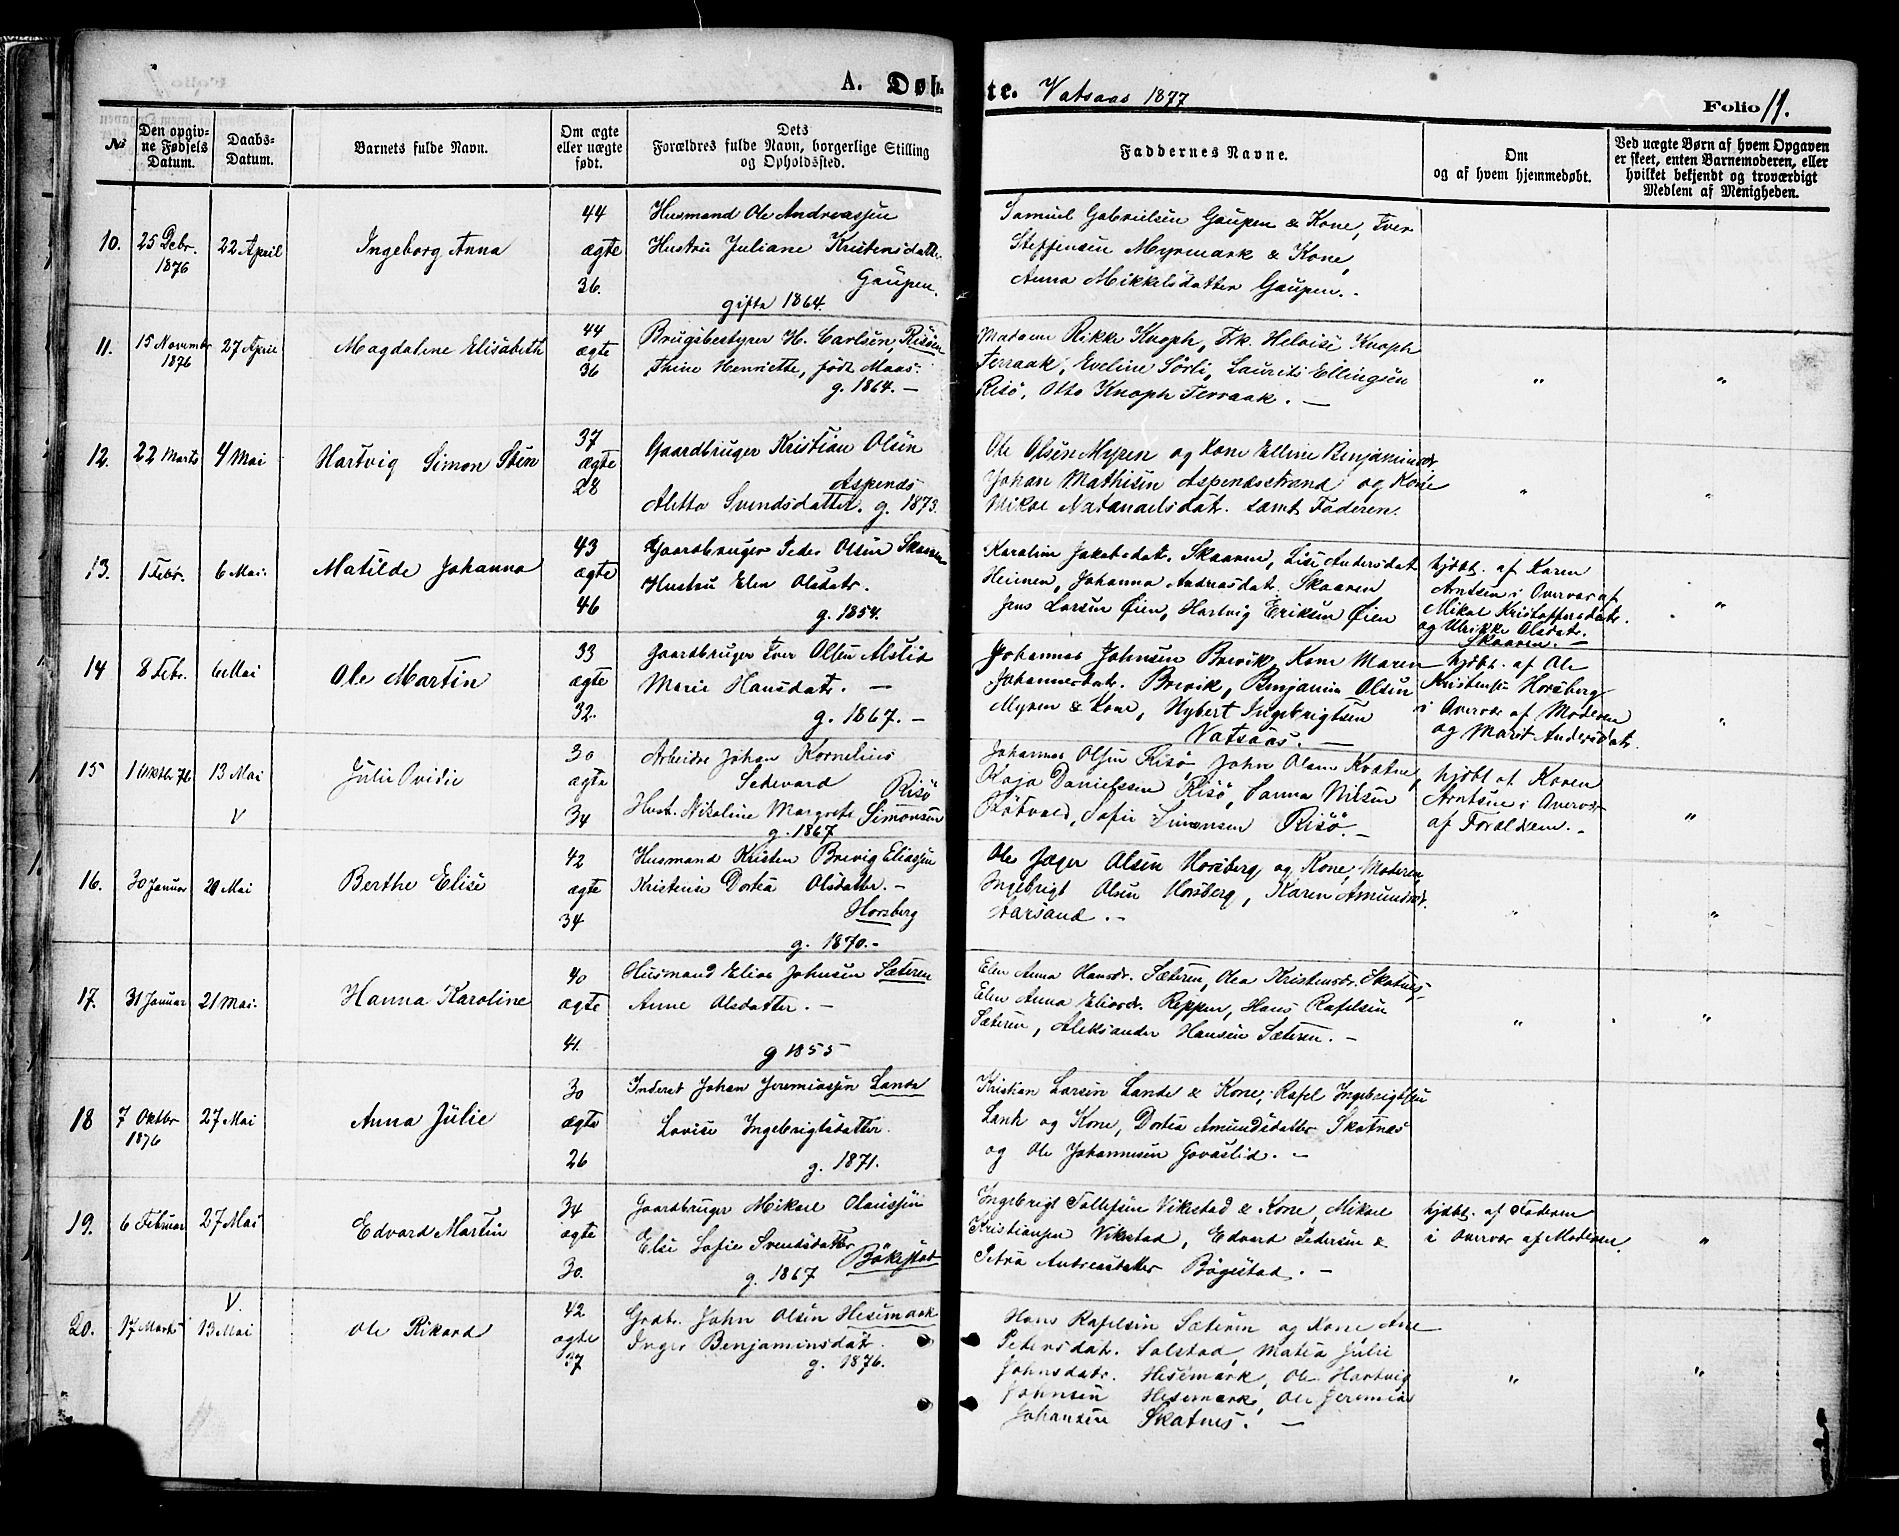 A. Døb
te. Vatsaas 1877
Folio 11.
№
Den opgiv-
ne Fødsels
Datum.
Daabs-
Datum.
Barnets fulde Navn.
Om ægte
eller uægte
født.
Dets
Forældres fulde Navn, borgerlige Stilling
og Opholdssted.
Faddernes Navne.
Om
og af hvem hjemmedøbt.
Ved uægte Børn af hvem Opgaven
er skeet, enten Barnemoderen, eller
hvilket bekjendt og troværdigt
Medlem af Menigheden.
10.
25 Debr.
1876
22 April
Ingeborg Anna
44
ægte
36.
Husmand Ole Andreassen
Hustru Juliane Kristensdatter
Gaupen.
gifte 1864.
Samuel Gabrielsen Gaupen & Kone, Iver
Steffensen Myrmark & Kone,
Anna Mikkelsdatter Gaupen. -
11.
15 November
1876
27 April
Magdalene Elisabeth
44
ægte
36
Brugsbestyrer H. Carlsen, Risøen
Thine Henriette, født Maas.
g. 1864. -
Madam Rikke Knoph, Frk. Heloise Knoph
Terraak, Eveline Sørli, Laurits Ellingsen
Risø, Otto Knoph Terraak. -
"
"
12.
22 Marts
4 Mai
Hartvig Simon Sten
37
ægte
28
Gaardbruger Kristian Olsen
Aspenæs
Aletta Svendsdatter. g. 1873.
Ole Olsen Myren og Kone Elline Benjaminsdr.
Johan Mathisen Aspenæsstrand og Kone
Mikal Natanaelsdatr. samt Faderen.
"
"
13.
1 Febr.
6 Mai.
Matilde Johanna
43
ægte
46
Gaardbruger Peder Olsen Skaaren
Hustru Elen Olsdatr.
g. 1854.
Karoline Jakobsdatr. Skaaren, Lise Andersdat.
Heimen, Johanna Andreasdat. Skaaren
Jens Larsen Øien, Hartvig Eriksen Øien
hjdbt. af Karen
Arntsen i Overvær af
Mikal Kristoffersdatr.
og Ulrikke Olsdatr.
Skaaren. -
"
14
8 Febr.
6 Mai
Ole Martin
33
ægte
32.
Gaardbruger Iver Olsen Alslid
Marie Hansdatr. -
g. 1867. -
Johannes Johnsen Brevik, Kone Maren
Johannesdatr. Brevik, Benjamin Olsen
Myren & Kone, Nybert Ingebrigtsen
Vatsaas. -
hjdbt. af Ole
Kristensen Horsberg
i Overvær af Moderen
og Marit Andersdatr.
"
15
1 Oktbr. 76
13 Mai
V
Julie Ovidie
30
ægte
34
Arbeider Johan Kornelius
Sedevard Risø
Hust. Nikoline Margrete Simonsen
g. 1867
Johannes Olsen Risø, John Olsen Kvatne,
Kaja Danielssen Risø, Sanna Nilsen
Røtvold, Sofie Simonsen Risø. -
hjdbt af Karen
Arntsen i Overvær
af Forældrene. -
"
16.
30 Januar
21 Mai
Berthe Elise
42
ægte
34
Husmand Kristen Brevig Eliassen
Kristense Dortea Olsdatter. -
Horsberg
g. 1870. -
Ole Jæger Olsen Horsberg og Kone, Moderen,
Ingebrigt Olsen Horsberg, Karen Amundsdr.
Aarsand. -
"
"
17.
31 Januar
21 Mai.
Hanna Karoline
40
ægte
41.
Husmand Elias Johnsen Sæteren
Anne Olsdatter. -
g 1855
Elen Anna Hansdr. Sæteren, Olea Kristensdr. Skatnes,
Elen Anna Eliasdr. Reppen, Hans Rafelsen
Sæteren, Aleksander Hansen Sæteren. -
"
"
18
7 Oktbr
1876
27 Mai
Anna Julie
30
ægte
26
Inderst Johan Jeremiassen Lande
Lovise Ingebrigtsdatter.
g. 1871.
Kristian Larsen Lande & Kone, Rafel Ingebrigtsen
Lande og Kone, Dortea Amundsdatter Skatnes
og Ole Johannesen Govaslid. -
19.
6 Februar
27 Mai
Edvard Martin
34
ægte
30.
Gaardbruger Mikael Olaussen
Else Sofie Svendsdatter
g. 1867 Bøkestad
Ingebrigt Tollefsen Vikestad & Kone, Mikael
Kristiansen Vikestad, Edvard Pedersen &
Petra Andreasdatter Bøgestad. -
hjdbt. af Faderen
i Overvær af Moderen.
"
20.
17 Marts
V.
13 Mai
Ole Rikard
42
ægte
37
Grdb. John Olsen Hesemark
Inger Benjaminsdat.
g. 1876.
Hans Rafelsen Sæteren og Kone Ane
Petersdat. Solstad, Matea Julie
Johnsdatr. Hesemark, Ole Hartvig
Johnsen Hesemark, Ole Jeremias
Johansen Skatnes. -
"
"